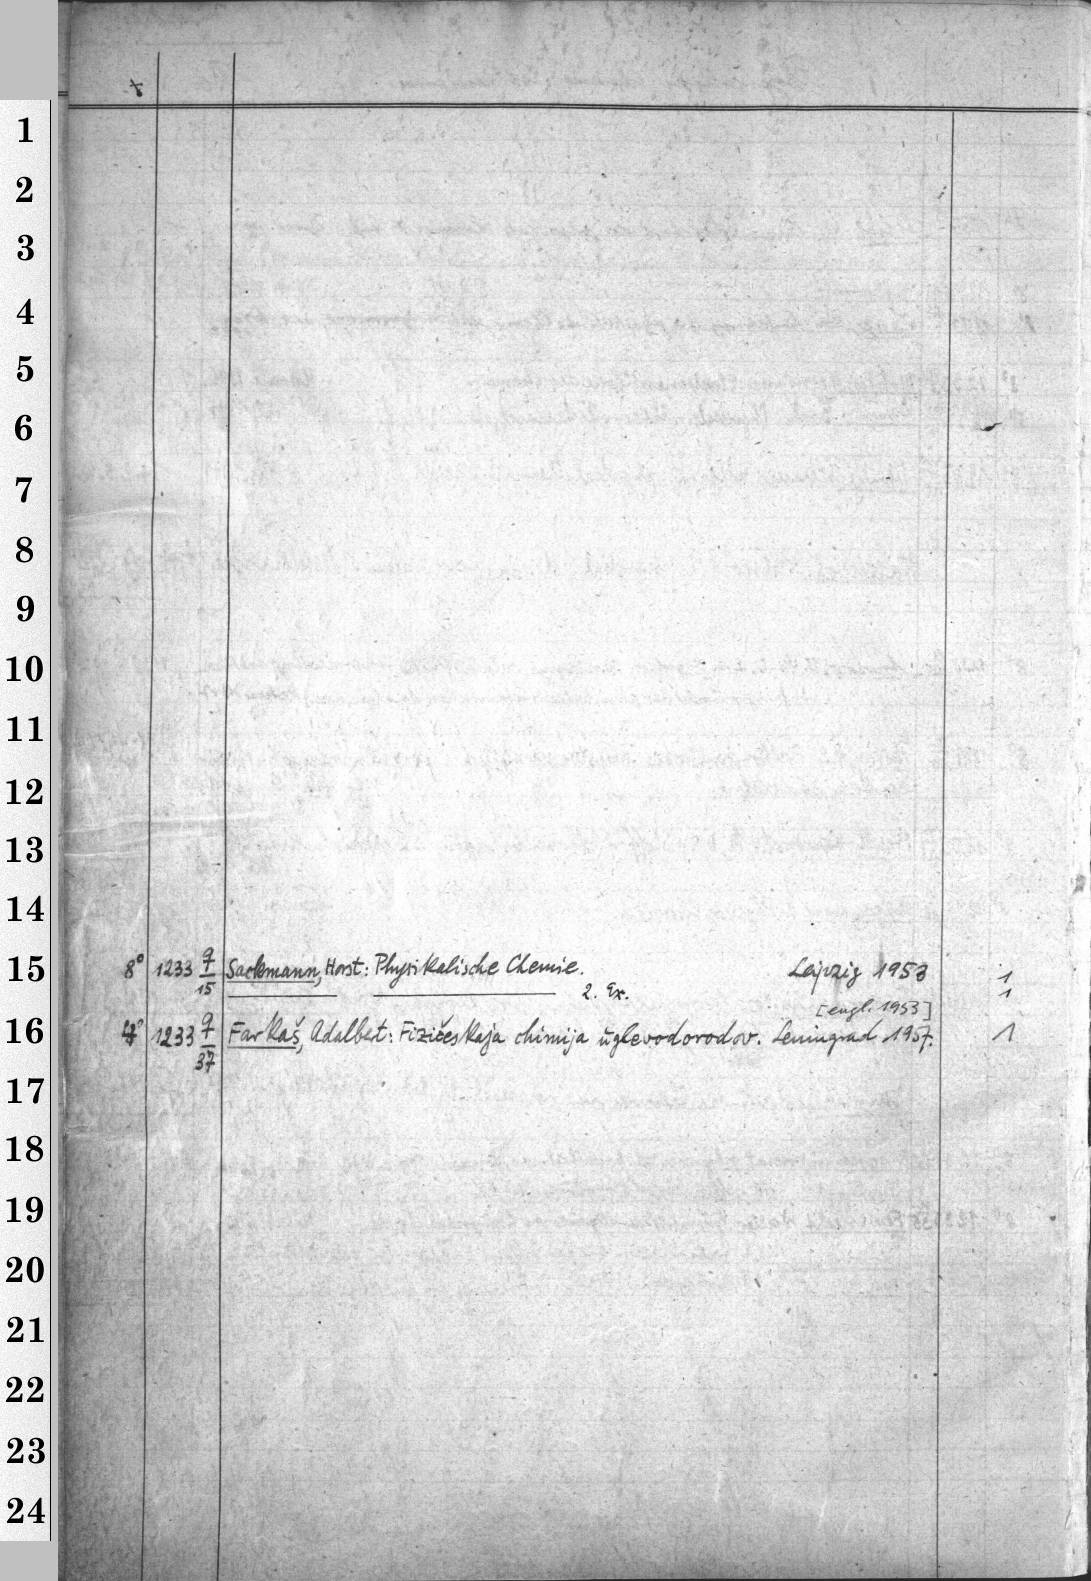 1
2
3
4
5
6
7
8
9
10
11
12
13
14
15 8° 1233 9/15 Sackmann, Horst: Physikalische Chemie. Leipzig 1953 1
2. Ex. 1
[engl. 1953]
16 4° 1233 9/37 Farkaš, Adalbert: Fizičeskaja chimija uglevodorodov. Leningrad 1957. 1
17
18
19
20
21
22
23
24